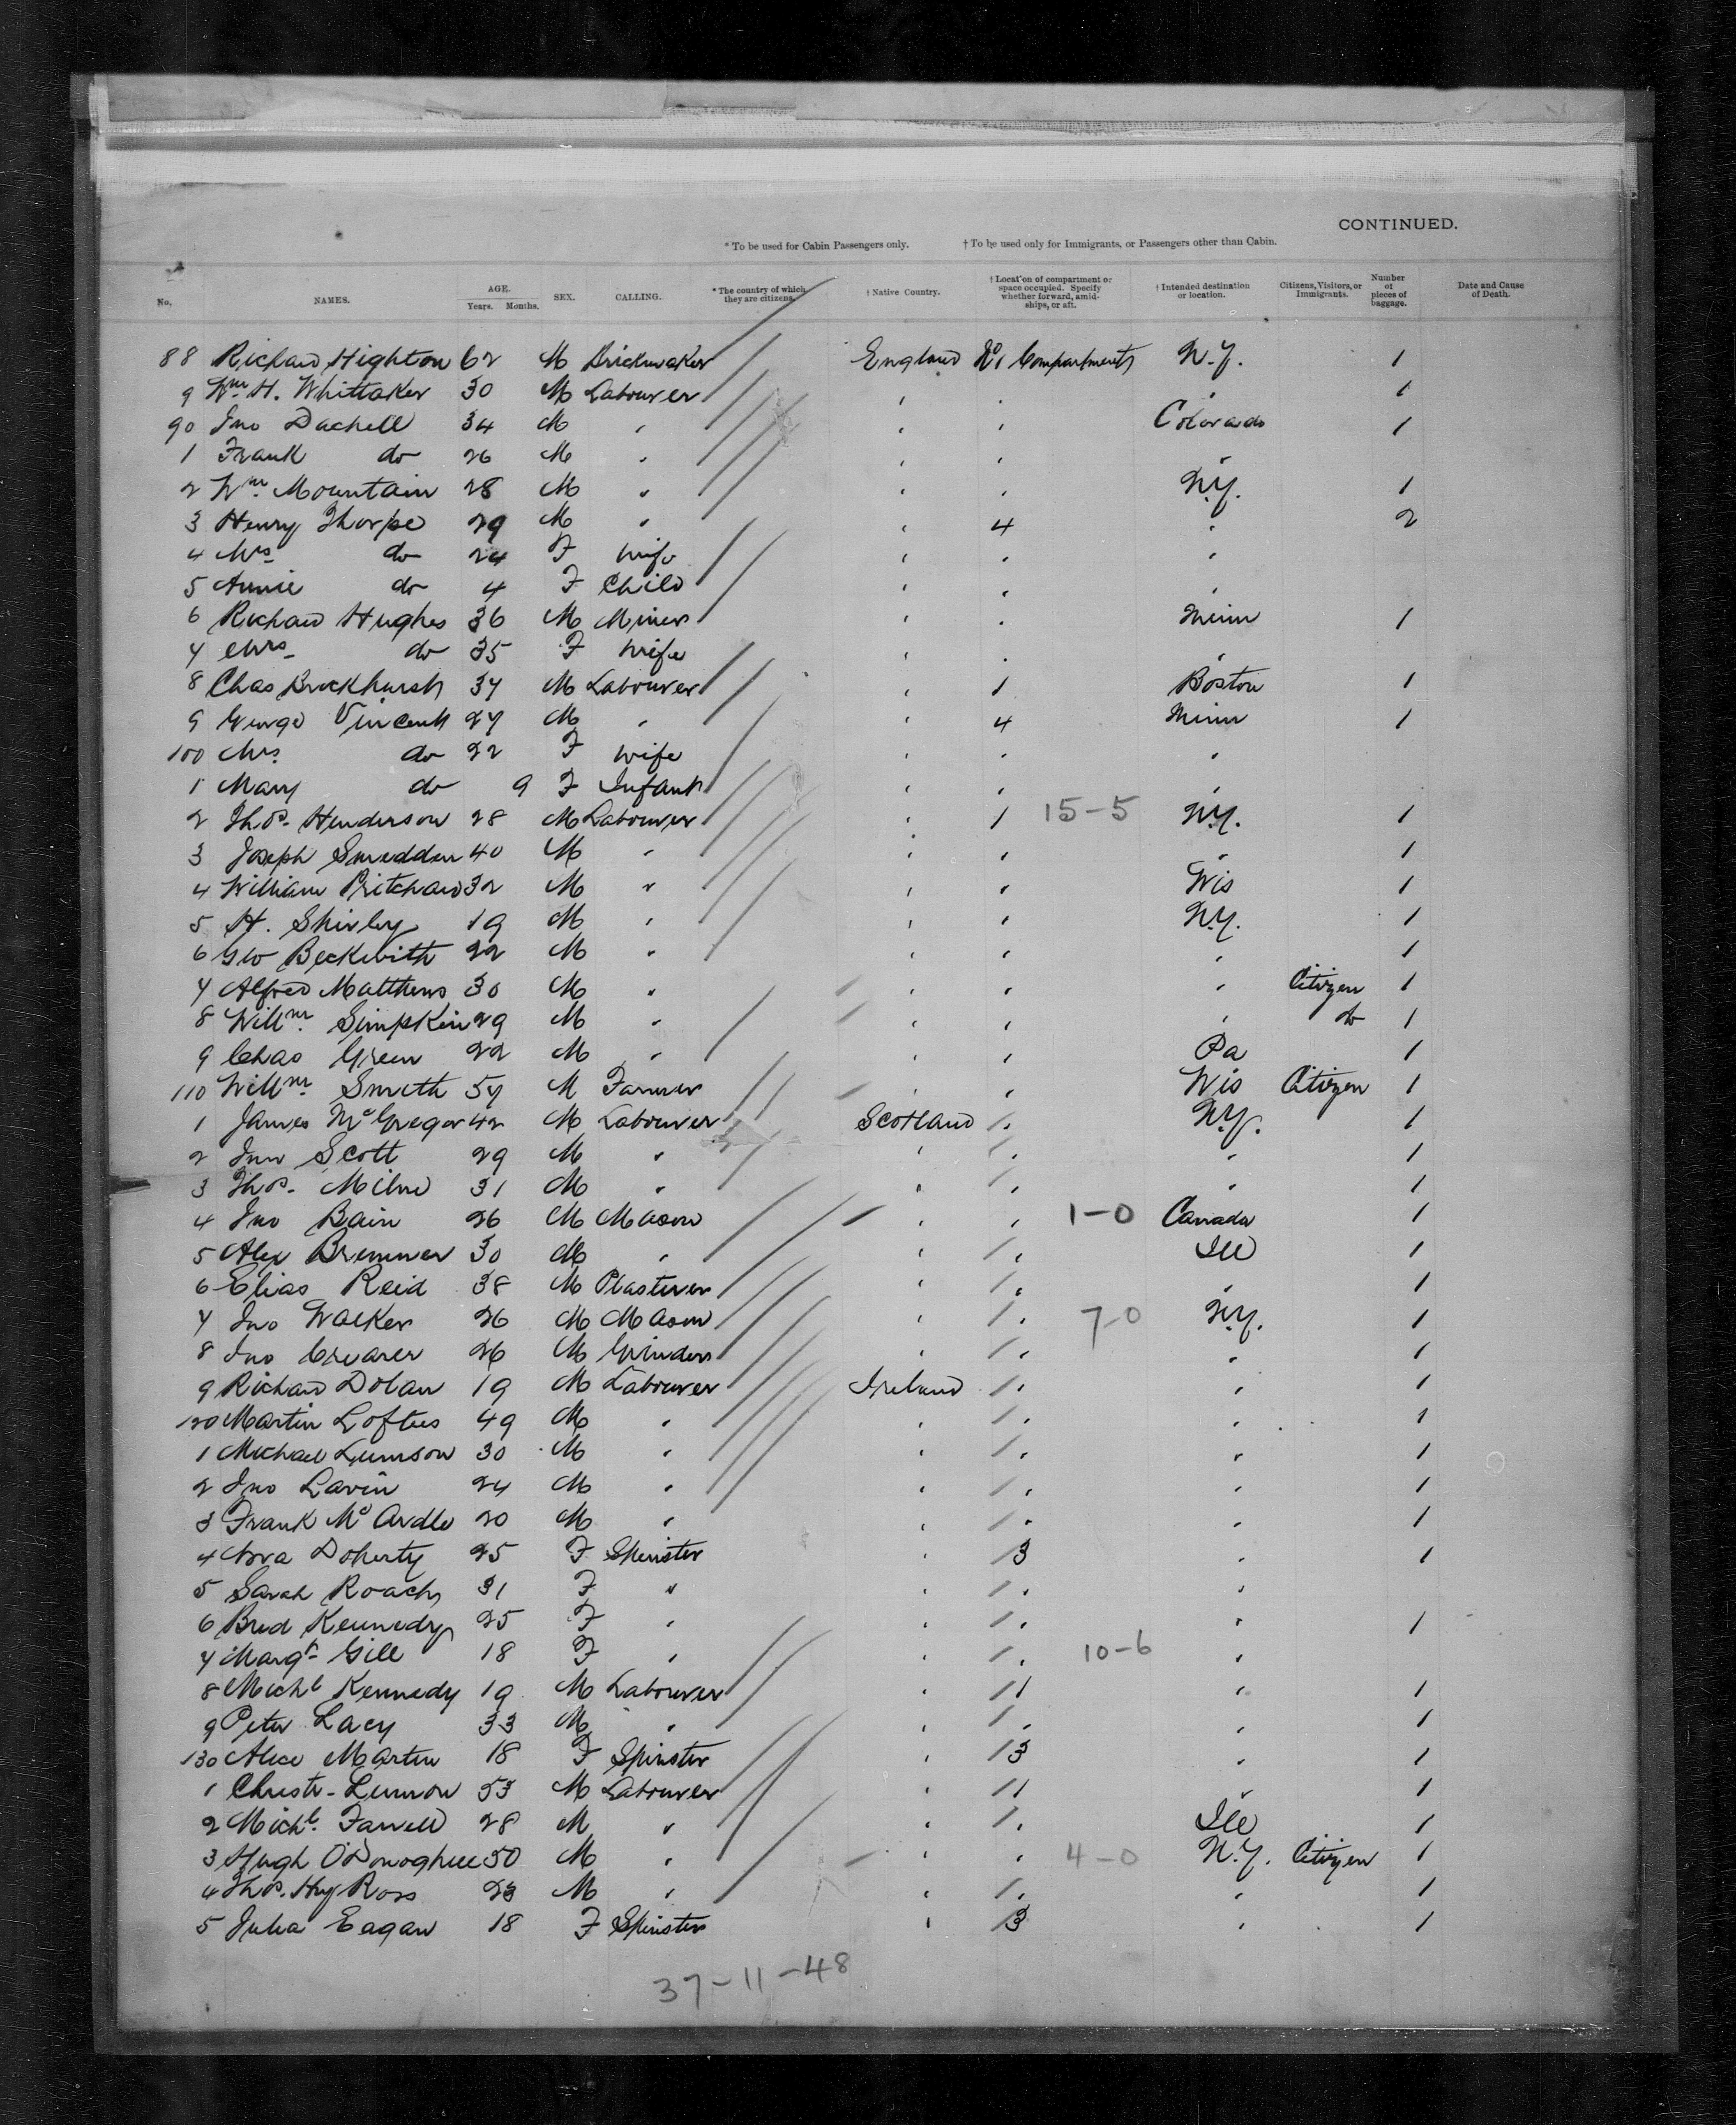 CONTINUED.
* To be used for Cabin Passengers only. † To be used only for Immigrants, or Passengers other than Cabin.
No. NAMES. AGE. Years. Months. SEX. CALLING. * The country of which they are citizens. † Native Country. † Location of compartment or space occupied. Specify whether forward, amidships, or aft. † Intended destination or location. Citizens, Visitors, or Immigrants. Number of pieces of baggage. Date and Cause of Death.
88 Richard Highton 62 M Brickmaker England No 1 Compartments N.Y. 1
9 Wm H. Whittaker 30 M Labourer " " " 1
90 Jno Dachell 34 M " " " Colorado 1
1 Frank do 26 M " " " "
2 Wm Mountain 28 M " " " N.Y. 1
3 Henry Thorpe 29 M " " 4 " 2
4 Mrs do 24 F Wife " " "
5 Annie do 4 F Child " " "
6 Richard Hughes 36 M Miner " " Minn 1
7 Mrs do 35 F Wife " " "
8 Chas Brockhurst 37 M Labourer " 1 Boston 1
9 George Vincent 27 M " " 4 Minn 1
100 Mrs do 22 F Wife " " "
1 Mary do 9 F Infant " " "
2 Thos. Henderson 28 M Labourer " 1 15-5 N.Y. 1
3 Joseph Smedden 40 M " " " " 1
4 William Pritchard 32 M " " " Wis 1
5 H. Shirley 19 M " " " N.Y. 1
6 Geo Beckwith 22 M " " " " 1
7 Alfred Matthews 30 M " " " " Citizen 1
8 Willm. Simpkin 29 M " " " " do 1
9 Chas Green 22 M " " " Pa 1
110 Willm. Smith 57 M Farmer " " Wis Citizen 1
1 James McGregor 42 M Labourer Scotland " N.Y. 1
2 Jno Scott 29 M " " " " 1
3 Thos. Milne 31 M " " " " 1
4 Jno Bain 26 M Mason " " 1-0 Canada 1
5 Alex Bremner 30 M " " " Ill 1
6 Elias Reid 38 M Plasterer " " " 1
7 Jno Walker 26 M Mason " " 7-0 N.Y. 1
8 Jno Crearer 26 M Grinder " " " 1
9 Richard Dolan 19 M Labourer Ireland " " 1
120 Martin Loftus 49 M " " " " 1
1 Michael 30 M " " " " 1
2 Jno Lavin 24 M " " " " 1
3 Frank McArdle 20 M " " " " 1
4 Nora Doherty 25 F Spinster " 3 " 1
5 Sarah Roach 31 F " " " "
6 Brid Kennedy 25 F " " " " 1
7 Margt. Gill 18 F " " " 10-6 "
8 Michl Kennedy 19 M Labourer " 1 " 1
9 Peter Lacy 33 M " " " " 1
130 Alice Martin 18 F Spinster " 3 " 1
1 Christr. Lennon 53 M Labourer " 1 " 1
2 Michl. Farrell 28 M " " " Ill 1
3 Hugh O'Donoghue 50 M " " " 4-0 N.Y. Citizen 1
4 Thos. Hy Ross 23 M " " " " 1
5 Julia Eagan 18 F Spinster " 3 " 1
37-11-48